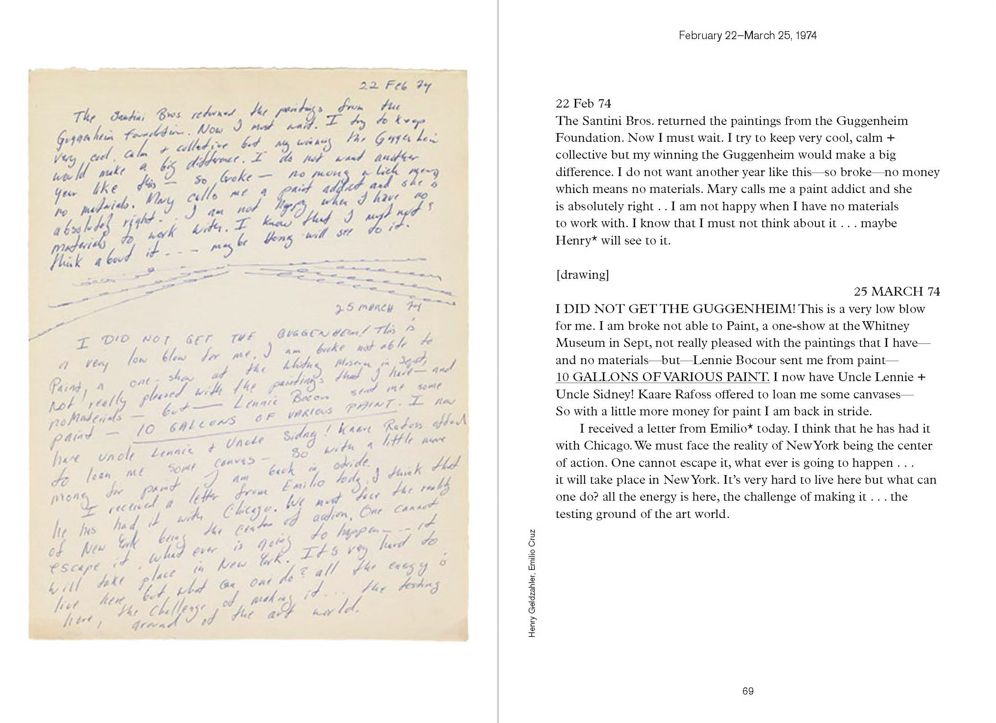 22 Feb 74
The Santini Bros. returned the paintings from the
Guggenheim Foundation. Now I must wait. I try to keep
very cool, calm + collective but my winning the Guggenheim
would make a big difference. I do not want another
year like this — so broke — no money which means
no materials. Mary calls me a paint addict and she is
absolutely right . . I am not happy when I have no
materials to work with. I know that I must not
think about it . . . maybe Henry will see to it.
25 MARCH 74
I DID NOT GET THE GUGGENHEIM! This is
a very low blow for me. I am broke not able to
Paint, a one-show at the Whitney Museum in Sept,
not really pleased with the paintings that I have — and
no materials — but — Lennie Bocour sent me some
paint — 10 GALLONS OF VARIOUS PAINT. I now
have Uncle Lennie + Uncle Sidney! Kaare Rafoss offered
to loan me some canvas — So with a little more
money for paint I am back in stride.
I received a letter from Emilio today. I think that
he has had it with Chicago. We must face the reality
of New York being the center of action. One cannot
escape it, what ever is going to happen — it
will take place in New York. It's very hard to
live here but what can one do? all the energy is
here, the challenge of making it . . . the testing
ground of the art world.
February 22–March 25, 1974
22 Feb 74
The Santini Bros. returned the paintings from the Guggenheim
Foundation. Now I must wait. I try to keep very cool, calm +
collective but my winning the Guggenheim would make a big
difference. I do not want another year like this—so broke—no money
which means no materials. Mary calls me a paint addict and she
is absolutely right . . I am not happy when I have no materials
to work with. I know that I must not think about it . . . maybe
Henry* will see to it.
[drawing]
25 MARCH 74
I DID NOT GET THE GUGGENHEIM! This is a very low blow
for me. I am broke not able to Paint, a one-show at the Whitney
Museum in Sept, not really pleased with the paintings that I have—
and no materials—but—Lennie Bocour sent me from paint—
10 GALLONS OF VARIOUS PAINT. I now have Uncle Lennie +
Uncle Sidney! Kaare Rafoss offered to loan me some canvases—
So with a little more money for paint I am back in stride.
I received a letter from Emilio* today. I think that he has had it
with Chicago. We must face the reality of New York being the center
of action. One cannot escape it, what ever is going to happen . . .
it will take place in New York. It's very hard to live here but what can
one do? all the energy is here, the challenge of making it . . . the
testing ground of the art world.
Henry Geldzahler, Emilio Cruz
69